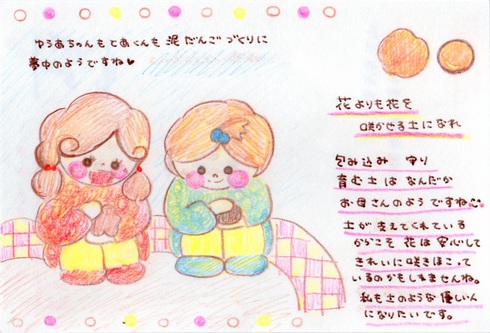 ゆうあちゃんもとあくんも泥だんごづくりに
夢中のようですね♥
花よりも花を
咲かせる土になれ
包み込み 守り
育む土はなんだか
お母さんのようですね
土が支えてくれている
からこそ 花は安心して
きれいに咲きほこって
いるのかもしれませんね。
私も土のような優しい人
になりたいです。